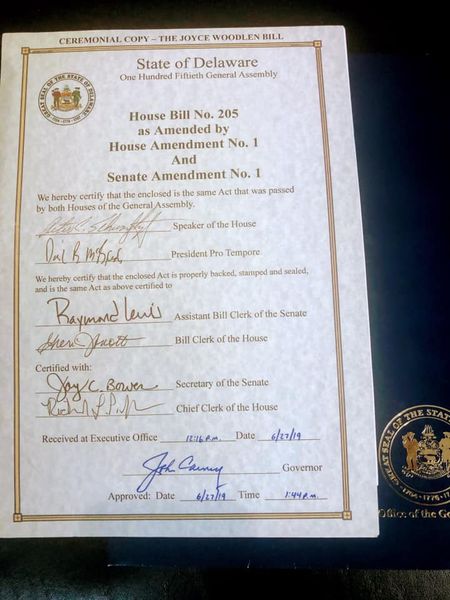 CEREMONIAL COPY – THE JOYCE WOODLEN BILL
State of Delaware
One Hundred Fiftieth General Assembly
House Bill No. 205
as Amended by
House Amendment No. 1
And
Senate Amendment No. 1
We hereby certify that the enclosed is the same Act that was passed
by both Houses of the General Assembly.
Speaker of the House
President Pro Tempore
We hereby certify that the enclosed Act is properly backed, stamped and sealed,
and is the same Act as above certified to
Raymond Lewis Assistant Bill Clerk of the Senate
Bill Clerk of the House
Certified with:
Joy C. Bower Secretary of the Senate
Chief Clerk of the House
Received at Executive Office 12:16 P.M. Date 6/27/19
John Carney Governor
Approved: Date 6/27/19 Time 1:44 P.M.
GREAT SEAL OF THE STATE OF DELAWARE
GREAT SEAL OF THE STA
1704 · 1776 · 17
Office of the Go